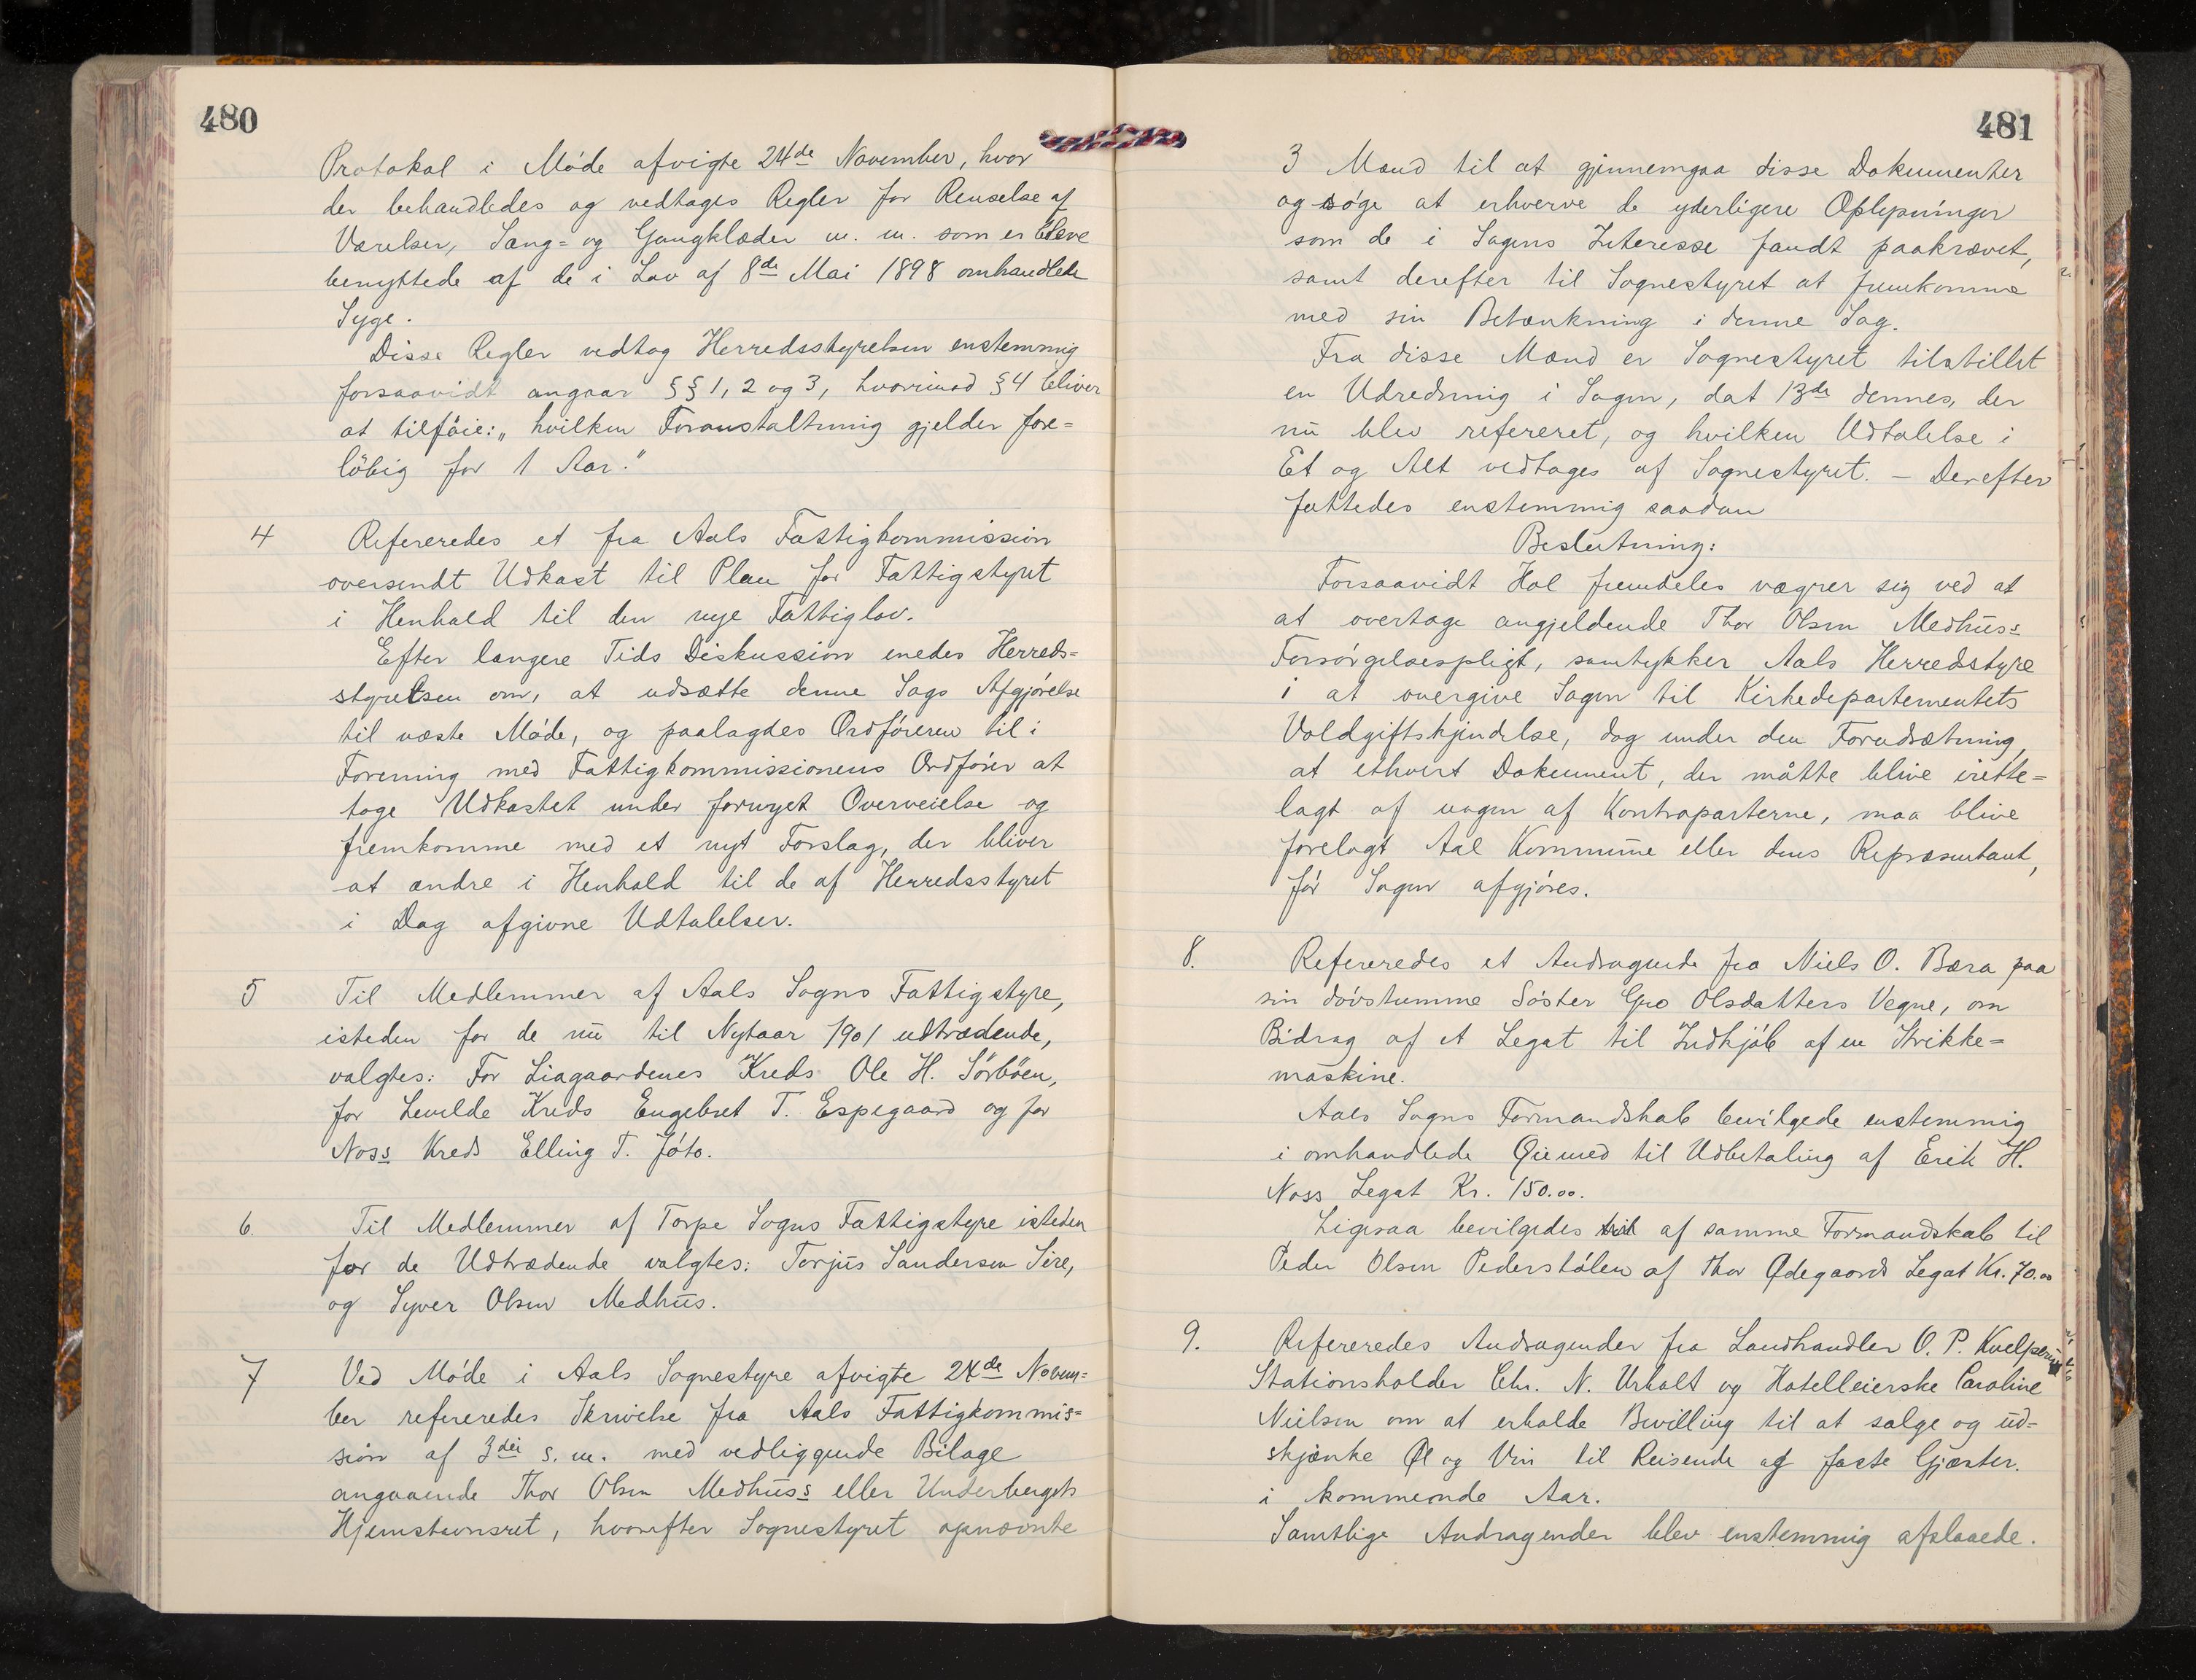 480
Protokol i Møde afvigte 24de November, hvor
der behandledes og vedtages Regler for Renselse af
Værelser, Sæng= og Gangklæder m. m. som er bleve
benyttede af de i Lov af 8de Mai 1898 omhandlede
Syge.
Disse Regler vedtog Herredsstyrelsen enstemmig
forsaavidt angaar §§ 1, 2 og 3, hvorimod § 4 bliver
at tilføie: „hvilken Foranstaltning gjelder fore=
løbig for 1 Aar."
4 Refereredes et fra Aals Fattigkommission
oversendt Udkast til Plan for Fattigstyret
i Henhold til den nye Fattiglov.
Efter længere Tids Diskussion enedes Herreds=
styrelsen om, at udsætte denne Sags Afgjørelse
til næste Møde, og paalagdes Ordføreren til i
Forening med Fattigkommissionens Ordfører at
tage Udkastet under fornyet Overveielse og
fremkomme med et nyt Forslag, der bliver
at ændre i Henhold til de af Herredsstyret
i Dag afgivne Udtalelser.
5 Til Medlemmer af Aals Sogns Fattigstyre,
isteden for de nu til Nytaar 1901 udtrædende,
valgtes: For Liagaardenes Kreds Ole H. Sørbøen,
for Levelde Kreds Engebret T. Espegaard og for
Noss Kreds Elling T. Jøto.
6. Til Medlemmer af Torpe Sogns Fattigstyre isteden
for de Udtrædende valgtes: Torjus Sanderson Sire,
og Syver Olsen Medhus.
7 Ved Møde i Aals Sognestyre afvigte 24de Novem=
ber refereredes Skrivelse fra Aals Fattigkommis=
sion af 3die s. m. med vedliggende Bilage
angaaende Thor Olsen Medhuss eller Underbergets
Hjemstavnsret, hvorefter Sognestyret opnævnte
481
3 Mænd til at gjennemgaa disse Dokumenter
og søge at erhverve de yderligere Oplysninger
som de i Sagens Interesse fandt paakrævet,
samt derefter til Sognestyret at fremkomme
med sin Betænkning i denne Sag.
Fra disse Mænd er Sognestyret tilstillet
en Udredning i Sagen, dat 13de dennes, der
nu blev refereret, og hvilken Udtalelse i
Et og Alt vedtages af Sognestyret. — Derefter
fattedes enstemmig saadan
Beslutning:
Forsaavidt Hol fremdeles vægrer sig ved at
at overtage angjeldende Thor Olsen Medhuss
Forsørgelsespligt, samtykker Aals Herredstyre
i at overgive Sagen til Kirkedepartementets
Voldgiftskjendelse, dog under den Forudsætning,
at ethvert Dokument, der måtte blive irette=
lagt af nogen af Kontraparterne, maa blive
forelagt Aal Kommune eller dens Repræsentant,
før Sagen afgjøres.
8. Refereredes et Andragende fra Niels O. Bæra paa
sin døvstumme Søster Gro Olsdatters Vegne, om
Bidrag af et Legat til Indkjøb af en Strikke=
maskine.
Aals Sogns Formandskab bevilgede enstemmig
i omhandlede Øiemed til Udbetaling af Erik H.
Noss Legat Kr. 150.00.
Ligesaa bevilgedes af samme Formandskab til
Peder Olsen Pederstølen af Thor Ødegaards Legat Kr. 70.00
9. Refereredes Andragender fra Landhandler O. P.
Stationsholder Chr. N. Urholt og Hotelleierske Caroline
Nielsen om at erholde Bevilling til at sælge og ud=
skjænke Øl og Vin til Reisende og faste Gjæster.
i kommende Aar.
Samtlige Andragender blev enstemmig afslaaede.